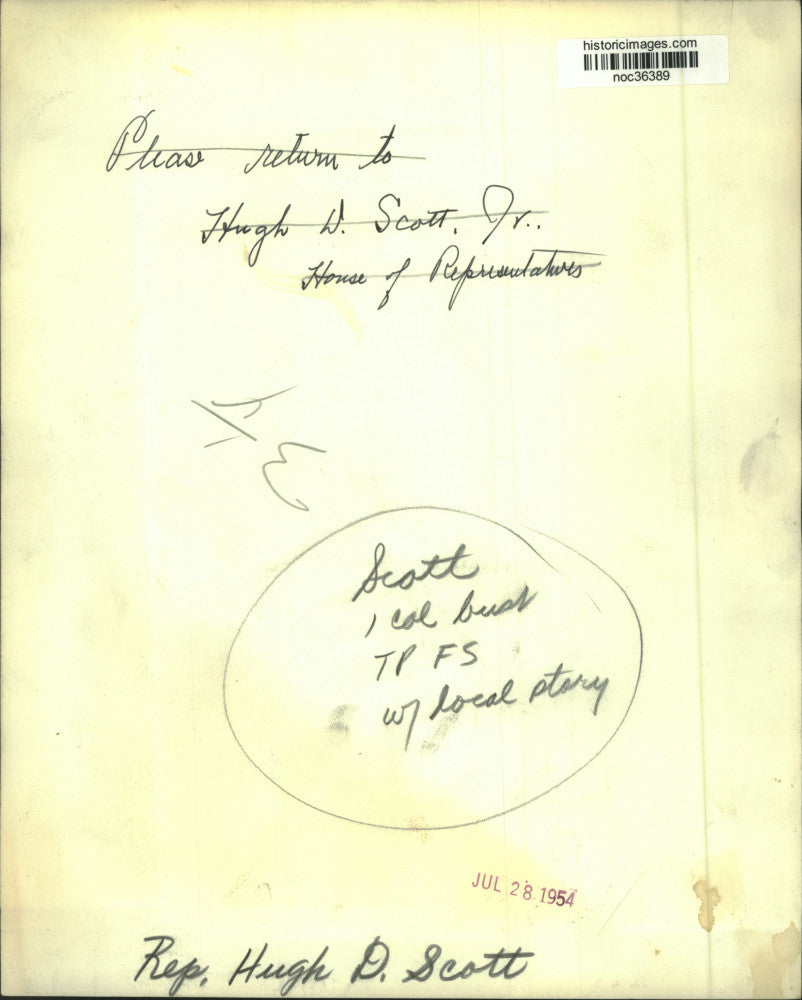 historicimages.com
noc36389
Please return to
Hugh D. Scott, Jr..
House of Representatives
Scott
1 col bust
TP FS
w/ local story
JUL 28 1954
Rep. Hugh D. Scott